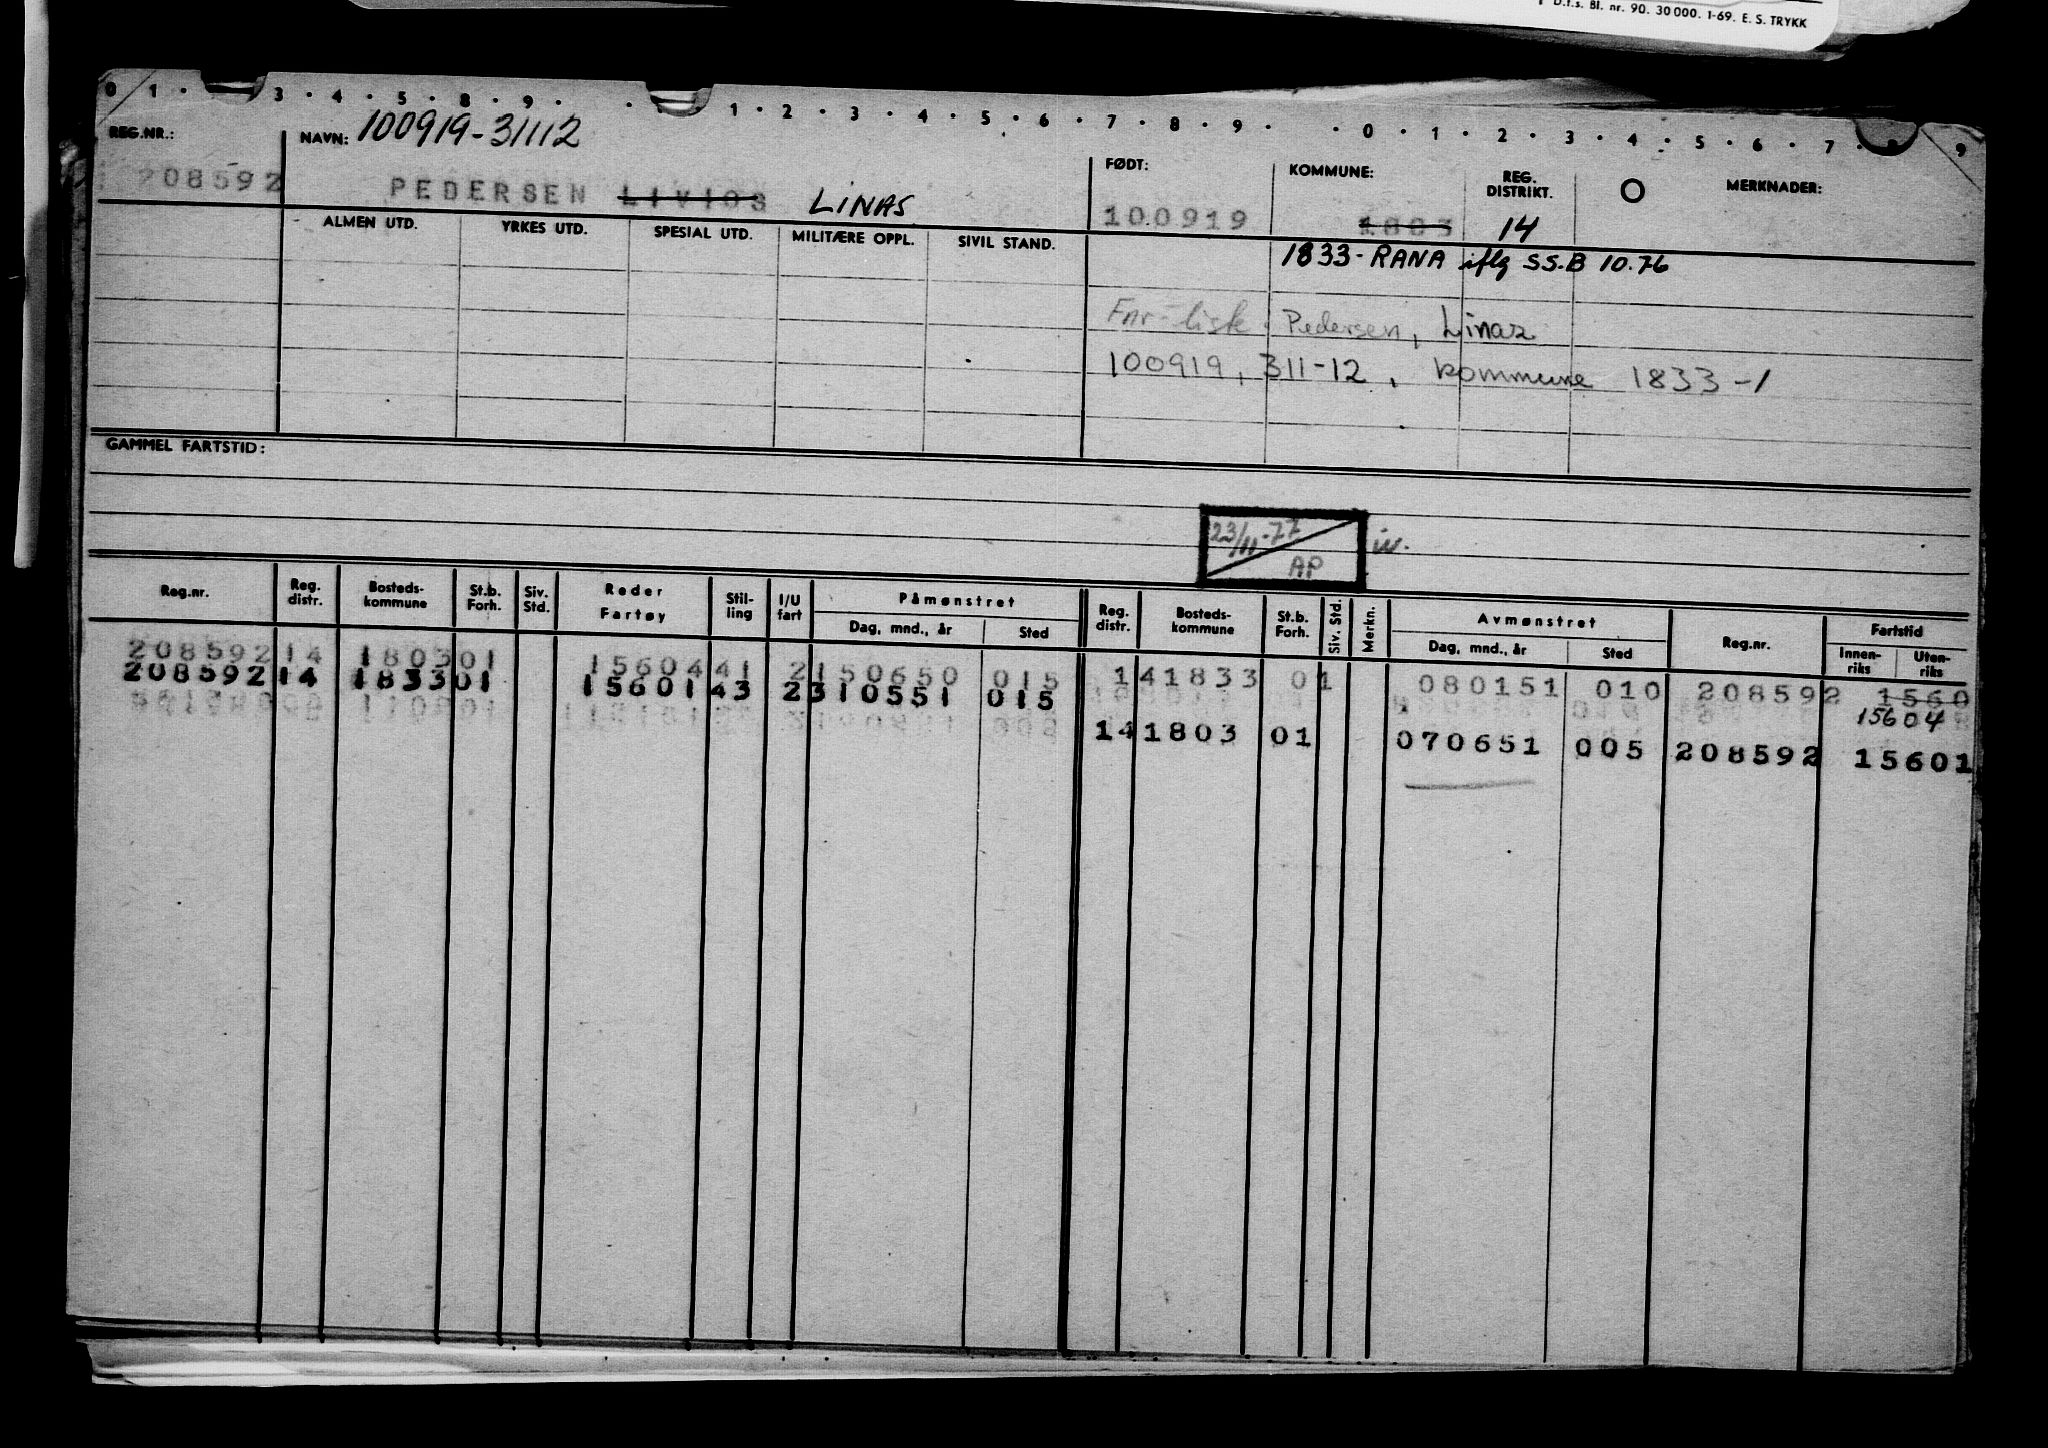 D.f.s. Bl. nr. 90. 30 000. 1-69. E. S. TRYKK
0 1 · 3 · 4 · 5 · 8 · 9 · · 1 · 2 · 3 · 4 · 5 · 6 · 7 · 8 · 9 · · 0 · 1 · 2 · 3 · 4 · 5 · 6 · 7 · 8 · 9
REG.NR.: NAVN: 100919-31112 FØDT: KOMMUNE: REG. DISTRIKT. O MERKNADER:
208592 PEDERSEN LIVIOS LINAS 100919 1803 14
ALMEN UTD. YRKES UTD. SPESIAL UTD. MILITÆRE OPPL. SIVIL STAND. 1833-RANA iflg SS.B 10.76
Fnr-liste. Pedersen, Linas
100919, 311-12, kommune 1833-1
GAMMEL FARTSTID:
23/11-77 AP
Reg.nr. Reg. distr. Bosteds- kommune St.b. Forh. Siv. Std. Reder Fartøy Stil- ling I/U fart Påmønstret Dag, mnd., år Sted Reg. distr. Bosteds- kommune St.b. Forh. Siv. Std. Merkn. Avmønstret Dag, mnd., år Sted Reg.nr. Fartstid Innen- riks Uten- riks
208592 14 1803 01 15604 41 2 150650 015 14 1833 01 080151 010 208592 1560
208592 14 1833 01 15601 43 2 310551 015 15604
14 1803 01 070651 005 208592 15601